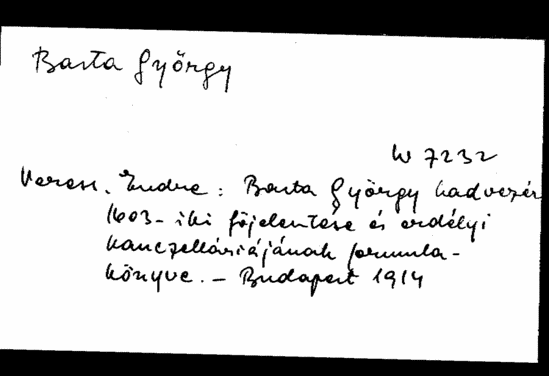 Basta György
W 7232
Veress, Endre: Basta György hadvezér
1603-iki főjelentése és erdélyi
kanczelláriájának formula-
könyve. – Budapest 1914